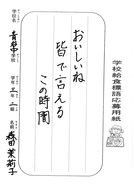 学校給食標語応募用紙
おいしいね
皆で言える
この時間
学校名
青翔中学校
学年
三年
二組
名前
森田茉莉子